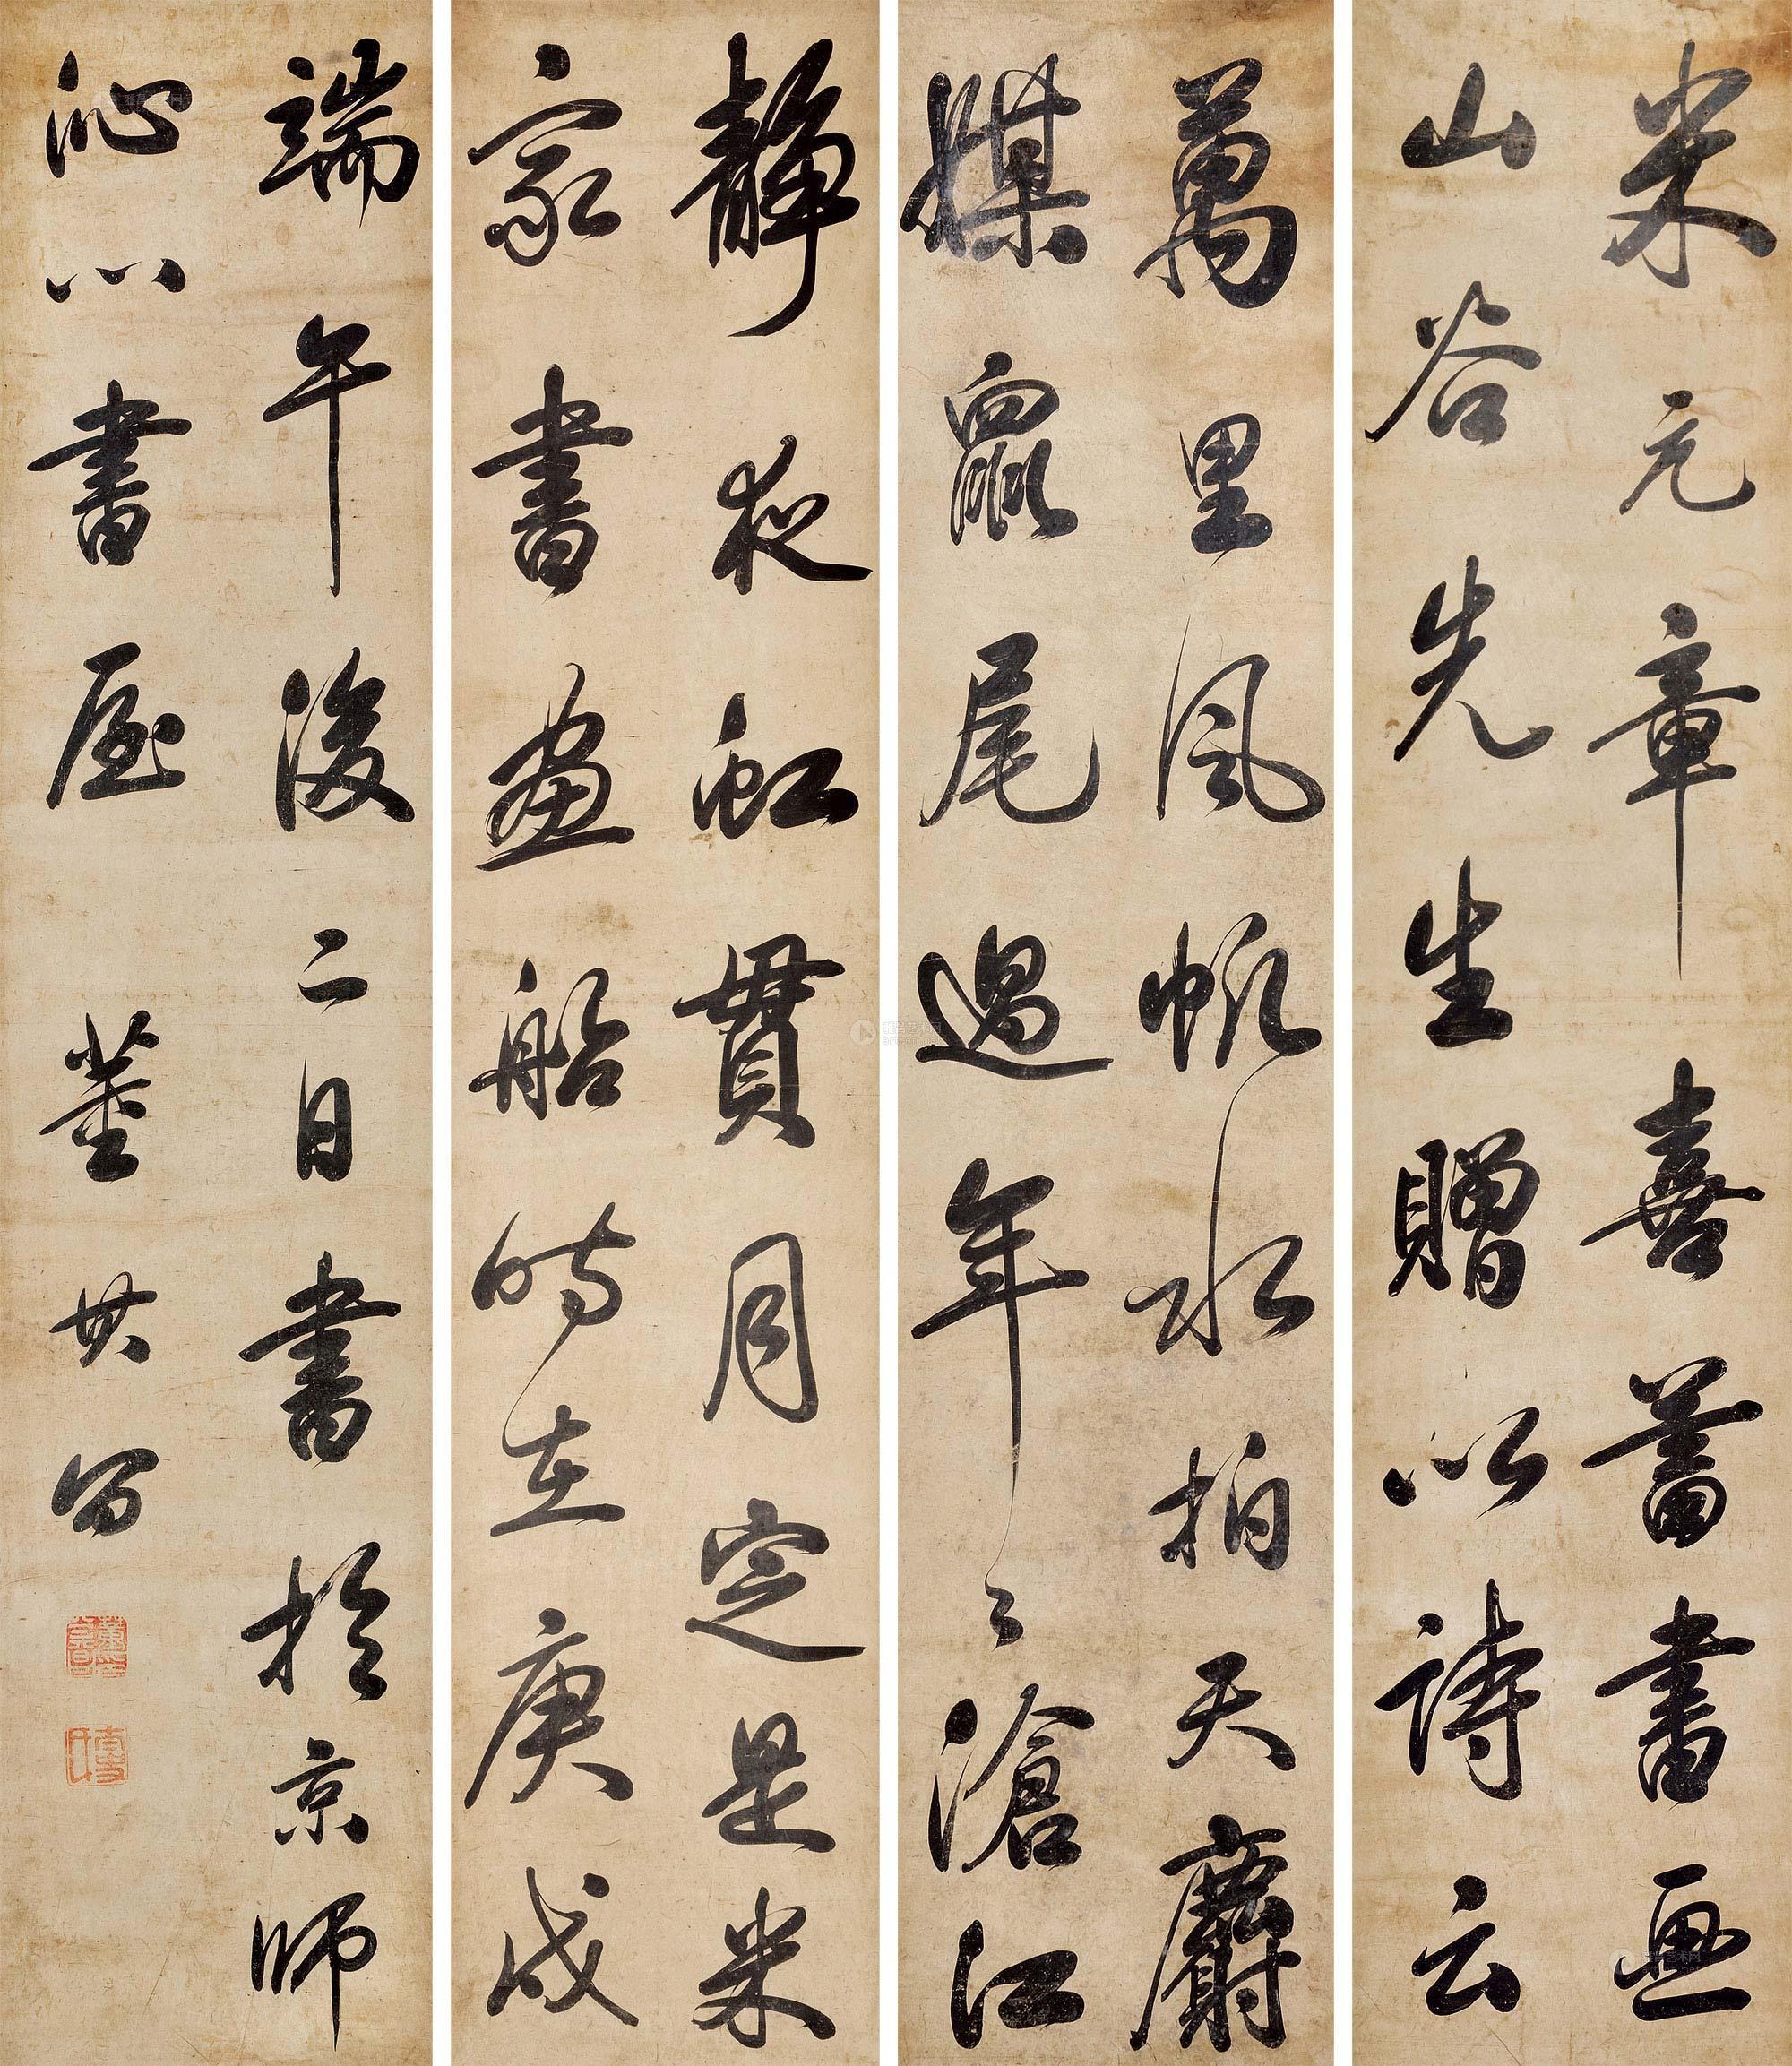 米元章喜蓄書画
山谷先生贈以詩云
萬里風帆水拍天麝
媒鼠尾過年々滄江
靜夜虹貫月定是米
家書畫船時在庚戌
端午後二日書於京師
沁心書屋 董其昌